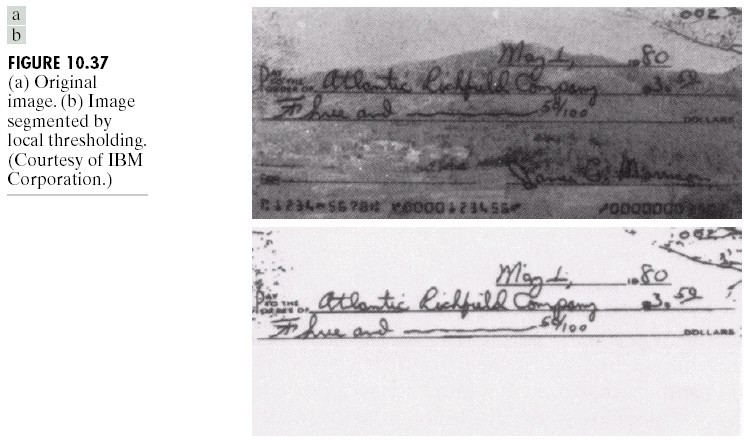 a
b
FIGURE 10.37
(a) Original
image. (b) Image
segmented by
local thresholding.
(Courtesy of IBM
Corporation.)
002
May 1, 1980
PAY
TO THE
ORDER OF Atlantic Richfield Company $3.50
Three and 50/100 DOLLARS
1234 5678 0000123456
002
May 1, 1980
PAY
TO THE
ORDER OF Atlantic Richfield Company $3.50
Three and 50/100 DOLLARS